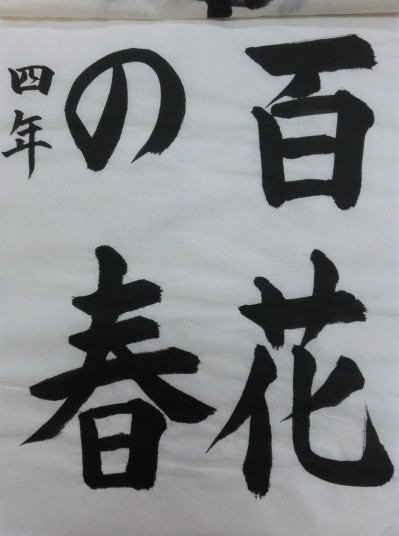 百花
の春
四年